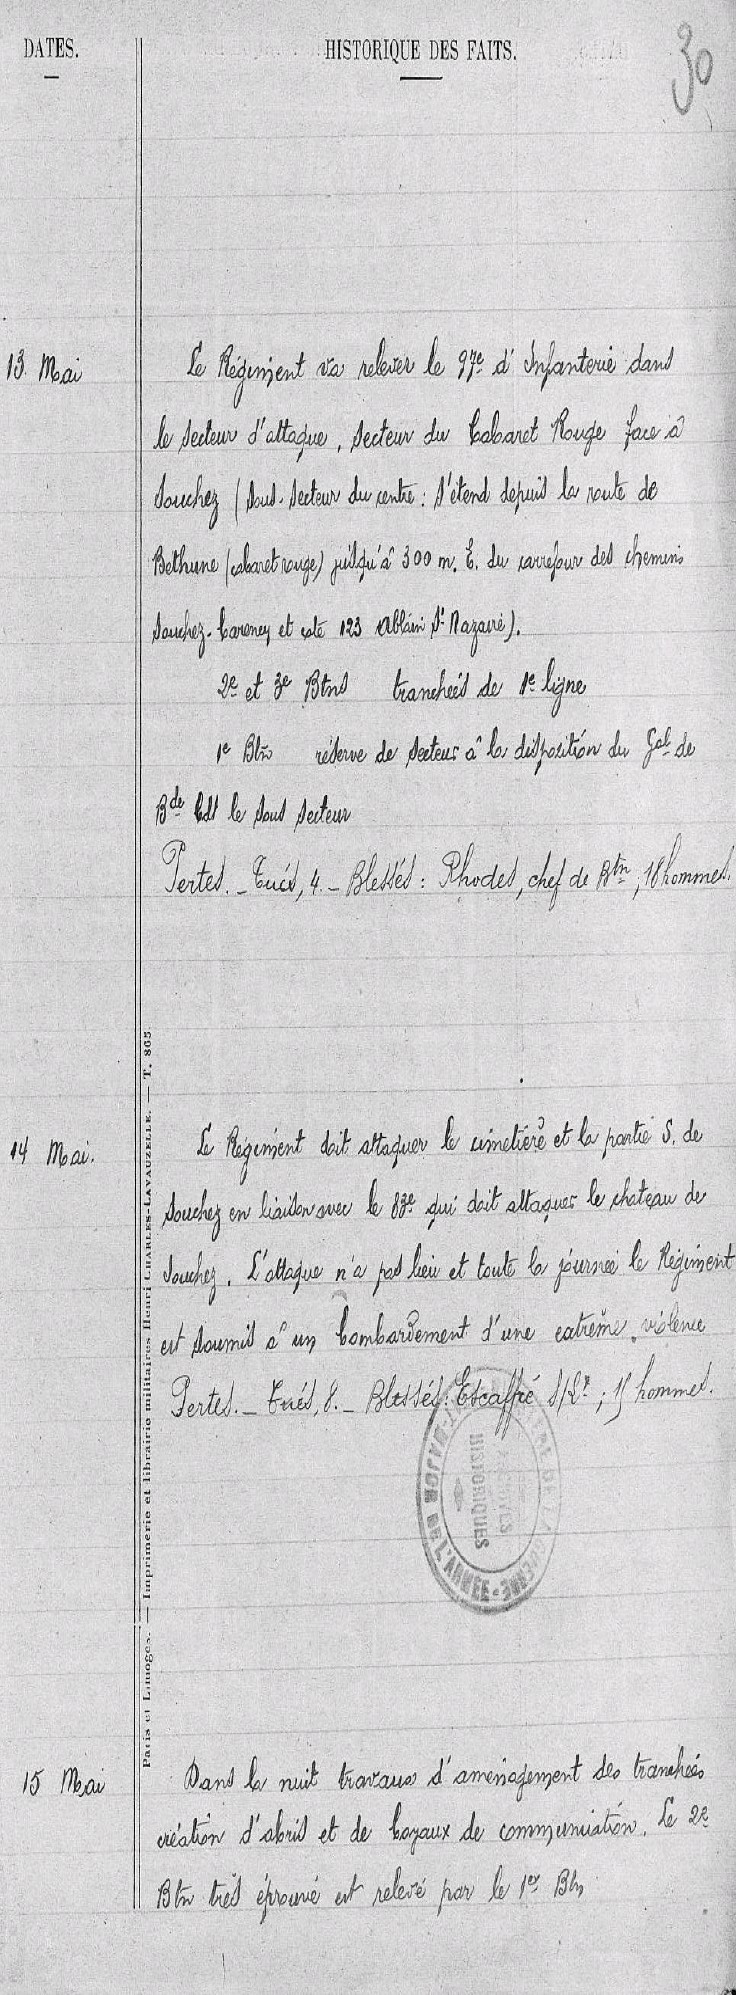 DATES.
HISTORIQUE DES FAITS.
30
13 Mai
Le Régiment va relever le 97e d'Infanterie dans
le secteur d'attaque, secteur du Cabaret Rouge face à
Souchez (sous-secteur du centre : s'étend depuis la route de
Bethune (cabaret rouge) jusqu'à 300 m. E. du carrefour des chemins
Souchez-Carency et cote 123 Ablain St Nazaire).
2e et 3e Btns tranchées de 1e ligne
1e Btn réserve de secteur à la disposition du Gal de
Bde Cdt le sous secteur
Pertes. _ Tués, 4. _ Blessés : Rhodes, chef de Btn ; 18 hommes.
14 Mai.
Le Régiment doit attaquer le cimetière et la partie S. de
Souchez en liaison avec le 83e qui doit attaquer le chateau de
Souchez. L'attaque n'a pas lieu et toute la journée le Régiment
est soumis à un bombardement d'une extrême violence
Pertes. _ Tués, 8. _ Blessés : Escaffié S/Lt ; 15 hommes.
ARCHIVES
HISTORIQUES
DE L'ARMÉE
Paris et Limoges. — Imprimerie et librairie militaires Henri CHARLES-LAVAUZELLE. — T. 865.
15 Mai
Dans la nuit travaux d'aménagement des tranchées
création d'abris et de boyaux de communication. Le 2e
Btn très éprouvé est relevé par le 1er Btn